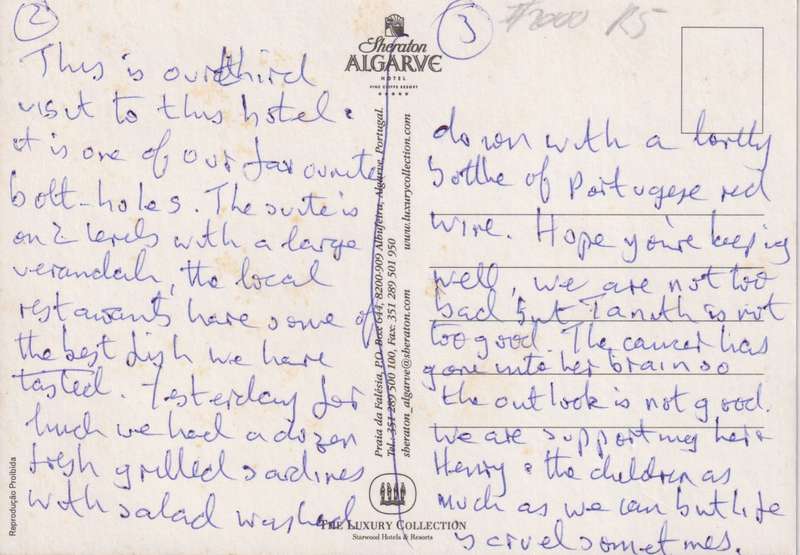 2
This is our third
visit to this hotel.
it is one of our favourite
bolt-holes. The suite is
on 2 levels with a large
verandah, the local
restaurants have some of
the best fish we have
tasted. Yesterday for
lunch we had a dozen
fresh grilled sardines
with salad washed
Reprodução Proibida
Sheraton
ALGARVE
HOTEL
PINE CLIFFS RESORT
Praia da Falésia, P.O. Box 644, 8200-909 Albufeira, Algarve, Portugal.
Tel.: 351 289 500 100, Fax: 351 289 501 950
sheraton_algarve@sheraton.com www.luxurycollection.com
THE LUXURY COLLECTION
Starwood Hotels & Resorts
3
R5
down with a lovely
bottle of Portugese red
wine. Hope you're keeping
well, we are not too
bad but Tanith is not
too good. The cancer has
gone into her brain so
the outlook is not good.
We are supporting her +
Henry & the children as
much as we can but life
is cruel sometimes.